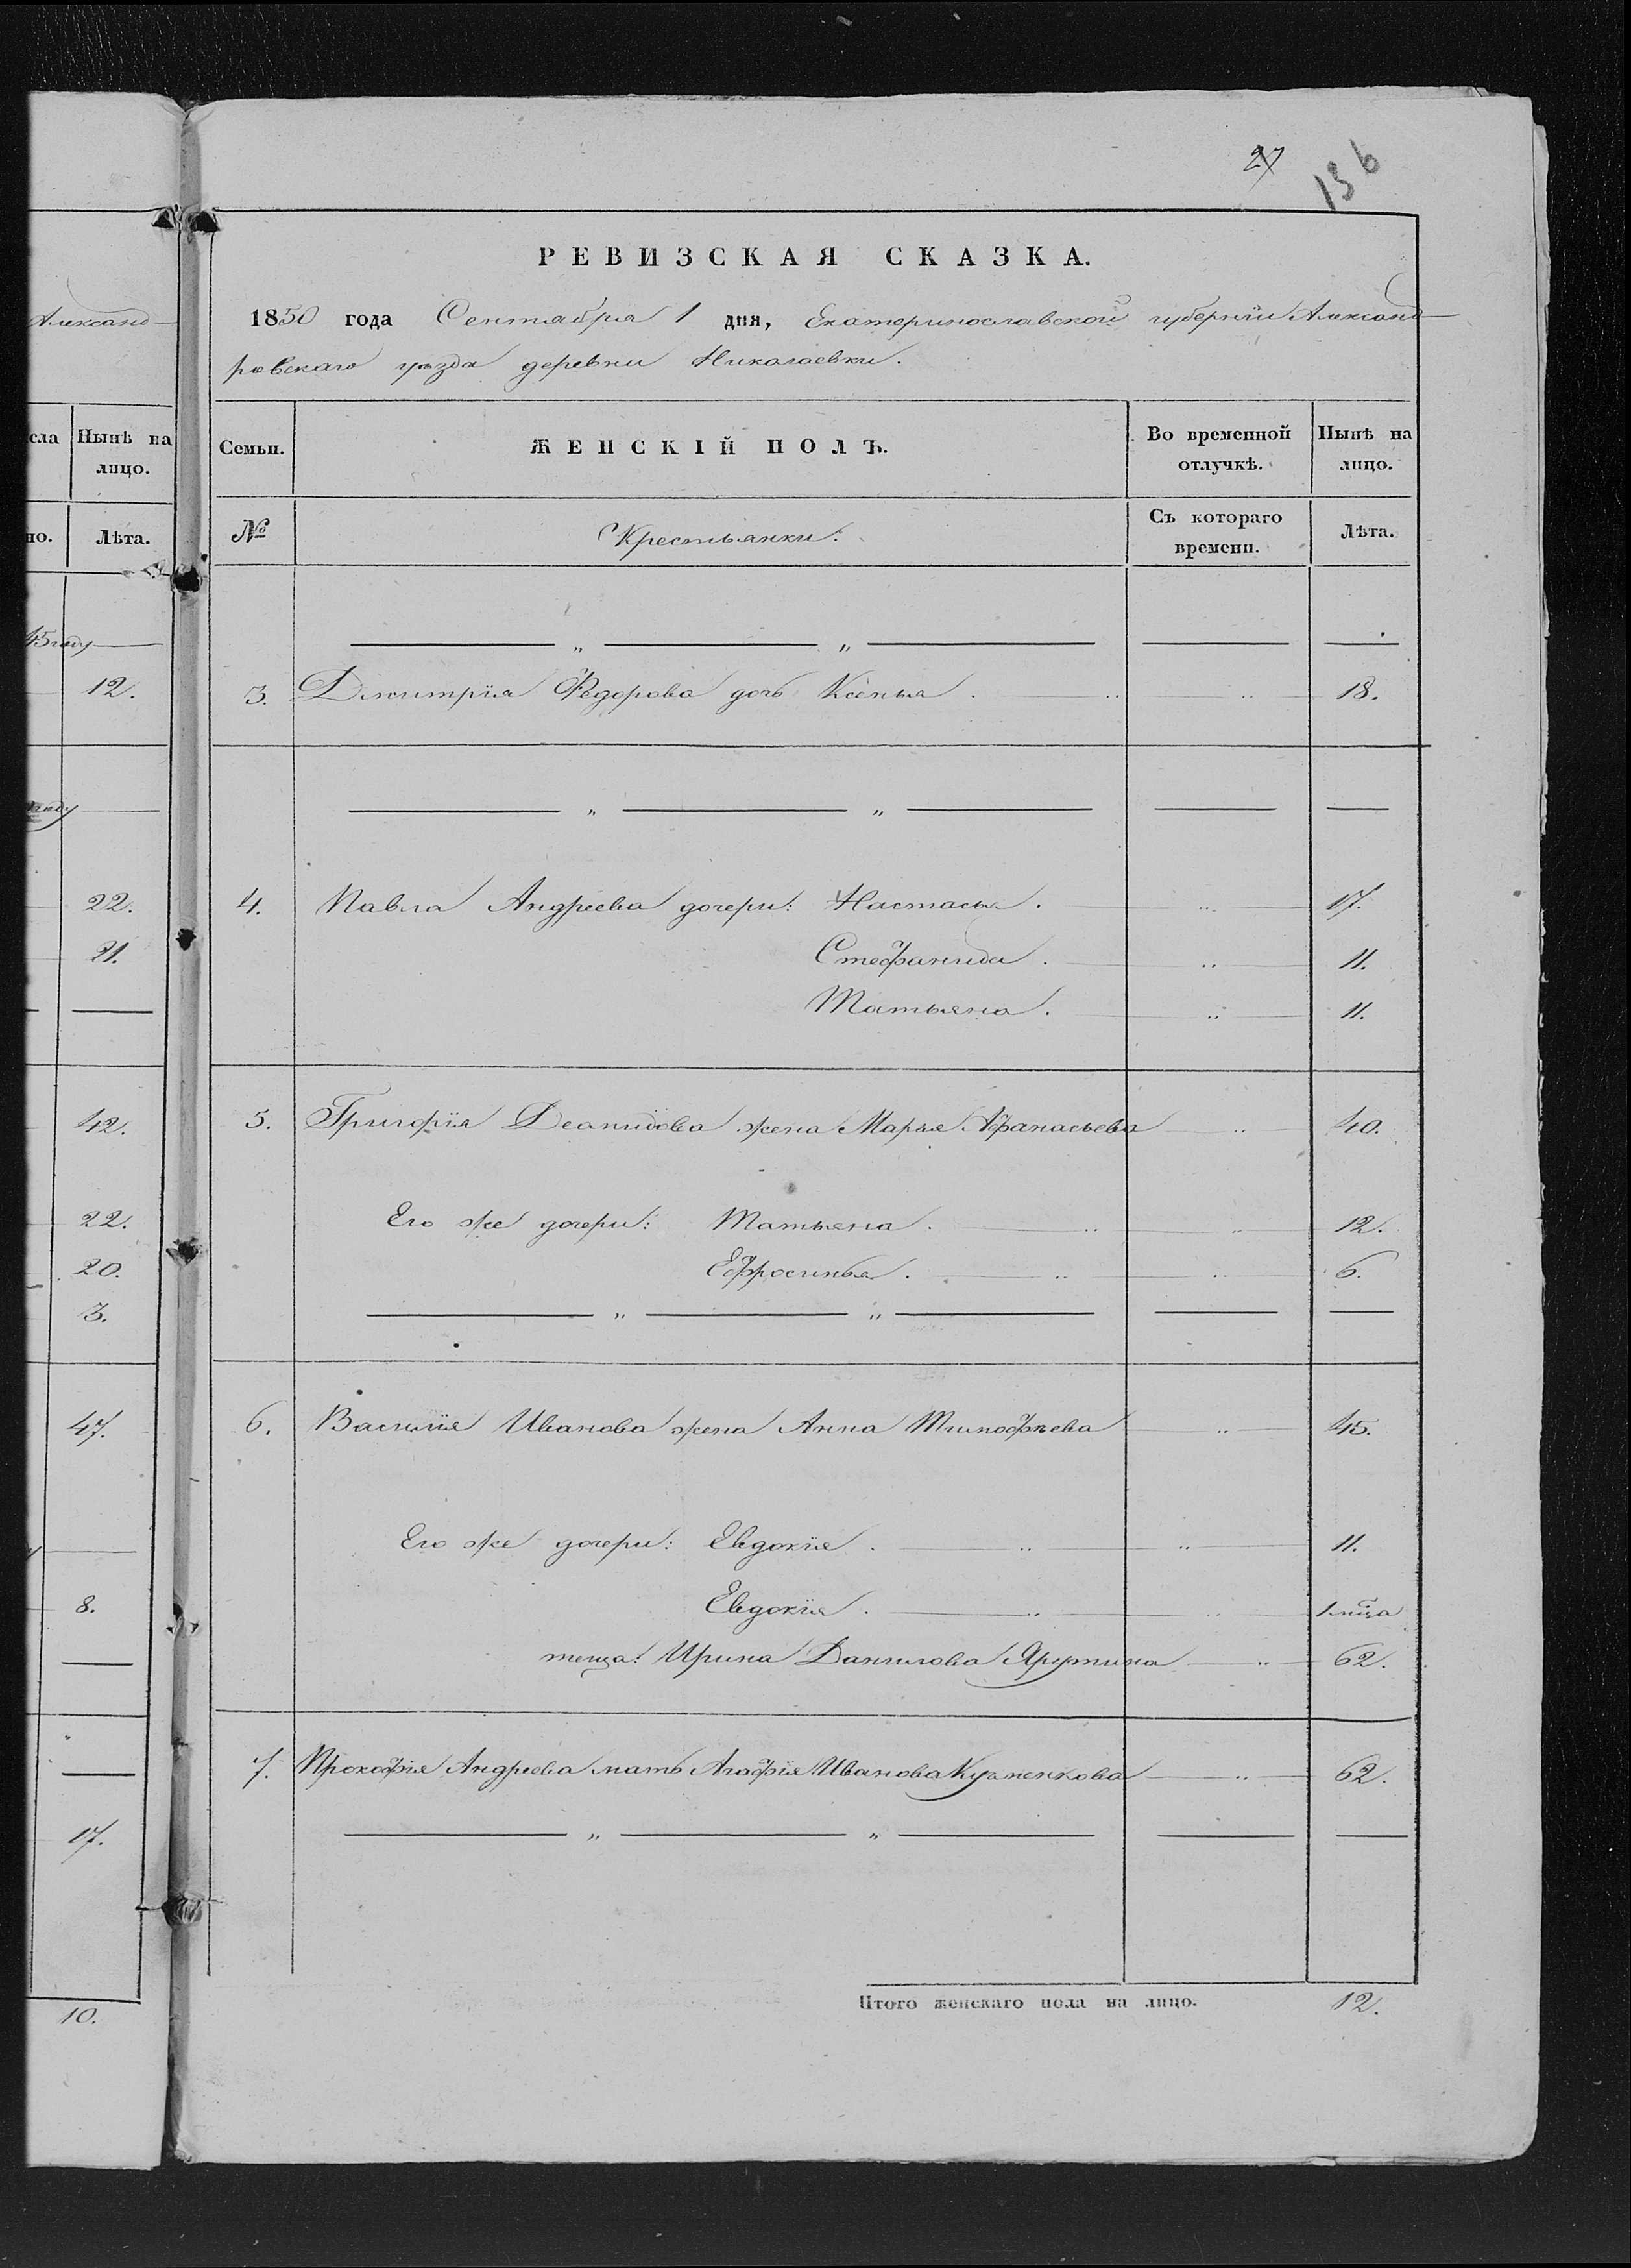 27
136
РЕВИЗСКАЯ СКАЗКА.
1850 года Сентября 1 дня, Екатеринославской губерніи Александ-
ровскаго уѣзда деревни Николаевки.
Семьи.
ЖЕНСКІЙ ПОЛЪ.
Во временной отлучкѣ.
Нынѣ на лицо.
№
Крестьянки:
Съ котораго времени.
Лѣта.
3. Дмитрія Федорова дочь Ксенья. 18.
4. Павла Андреева дочери: Настасья. 17.
Стефанида. 11.
Татьяна. 11.
5. Григорія Демидова жена Марья Афанасьева 40.
Его же дочери: Татьяна. 12.
Ефросинья. 6.
6. Василія Иванова жена Анна Тимофѣева 45.
Его же дочери: Евдокія. 11.
Евдокія. 1 мца
теща: Ирина Данилова 62.
7. Прокофія Андреева мать Агафія Иванова 62.
Итого женскаго пола на лицо. 12.
Александ-
сла
Нынѣ на
лицо.
но.
Лѣта.
45 году
12.
году
22.
21.
42.
22.
20.
3.
47.
8.
17.
10.